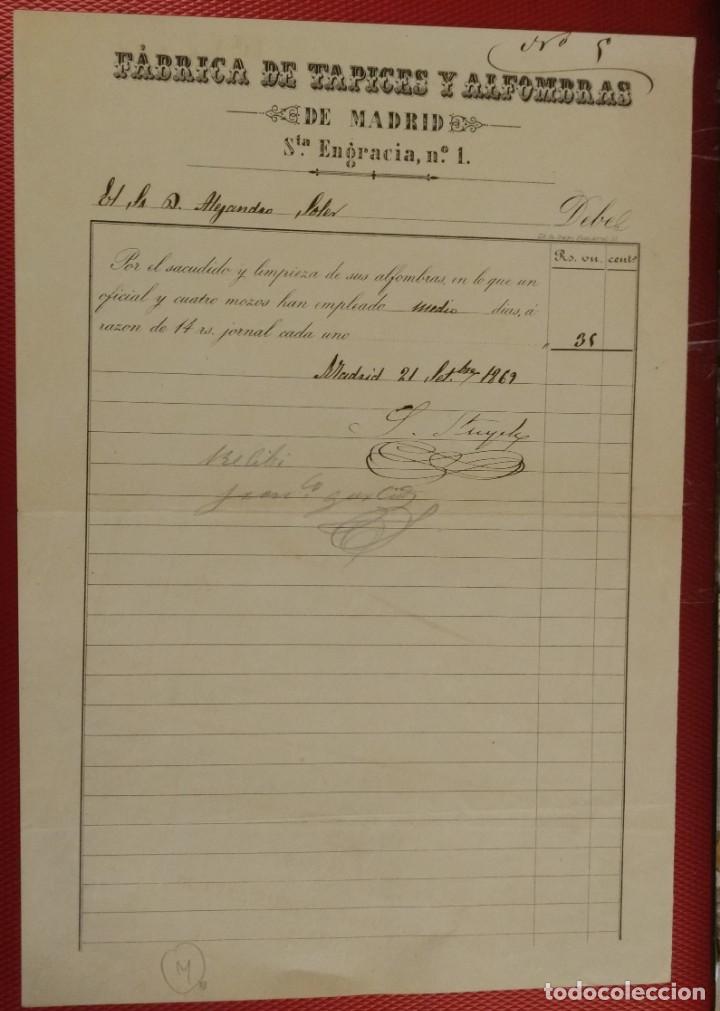 Nº 5
FÁBRICA DE TAPICES Y ALFOMBRAS
DE MADRID
Sta. Engracia, n.º 1.
El Sr D. Alejandro Soler Debe
Rs. vn. cents
Por el sacudido y limpieza de sus alfombras, en lo que un
oficial y cuatro mozos han empleado medio dias, á
razon de 14 rs. jornal cada uno " 35
Madrid 21 Set.bre 1869
Stuyck
Recibi
M
todocoleccion.net